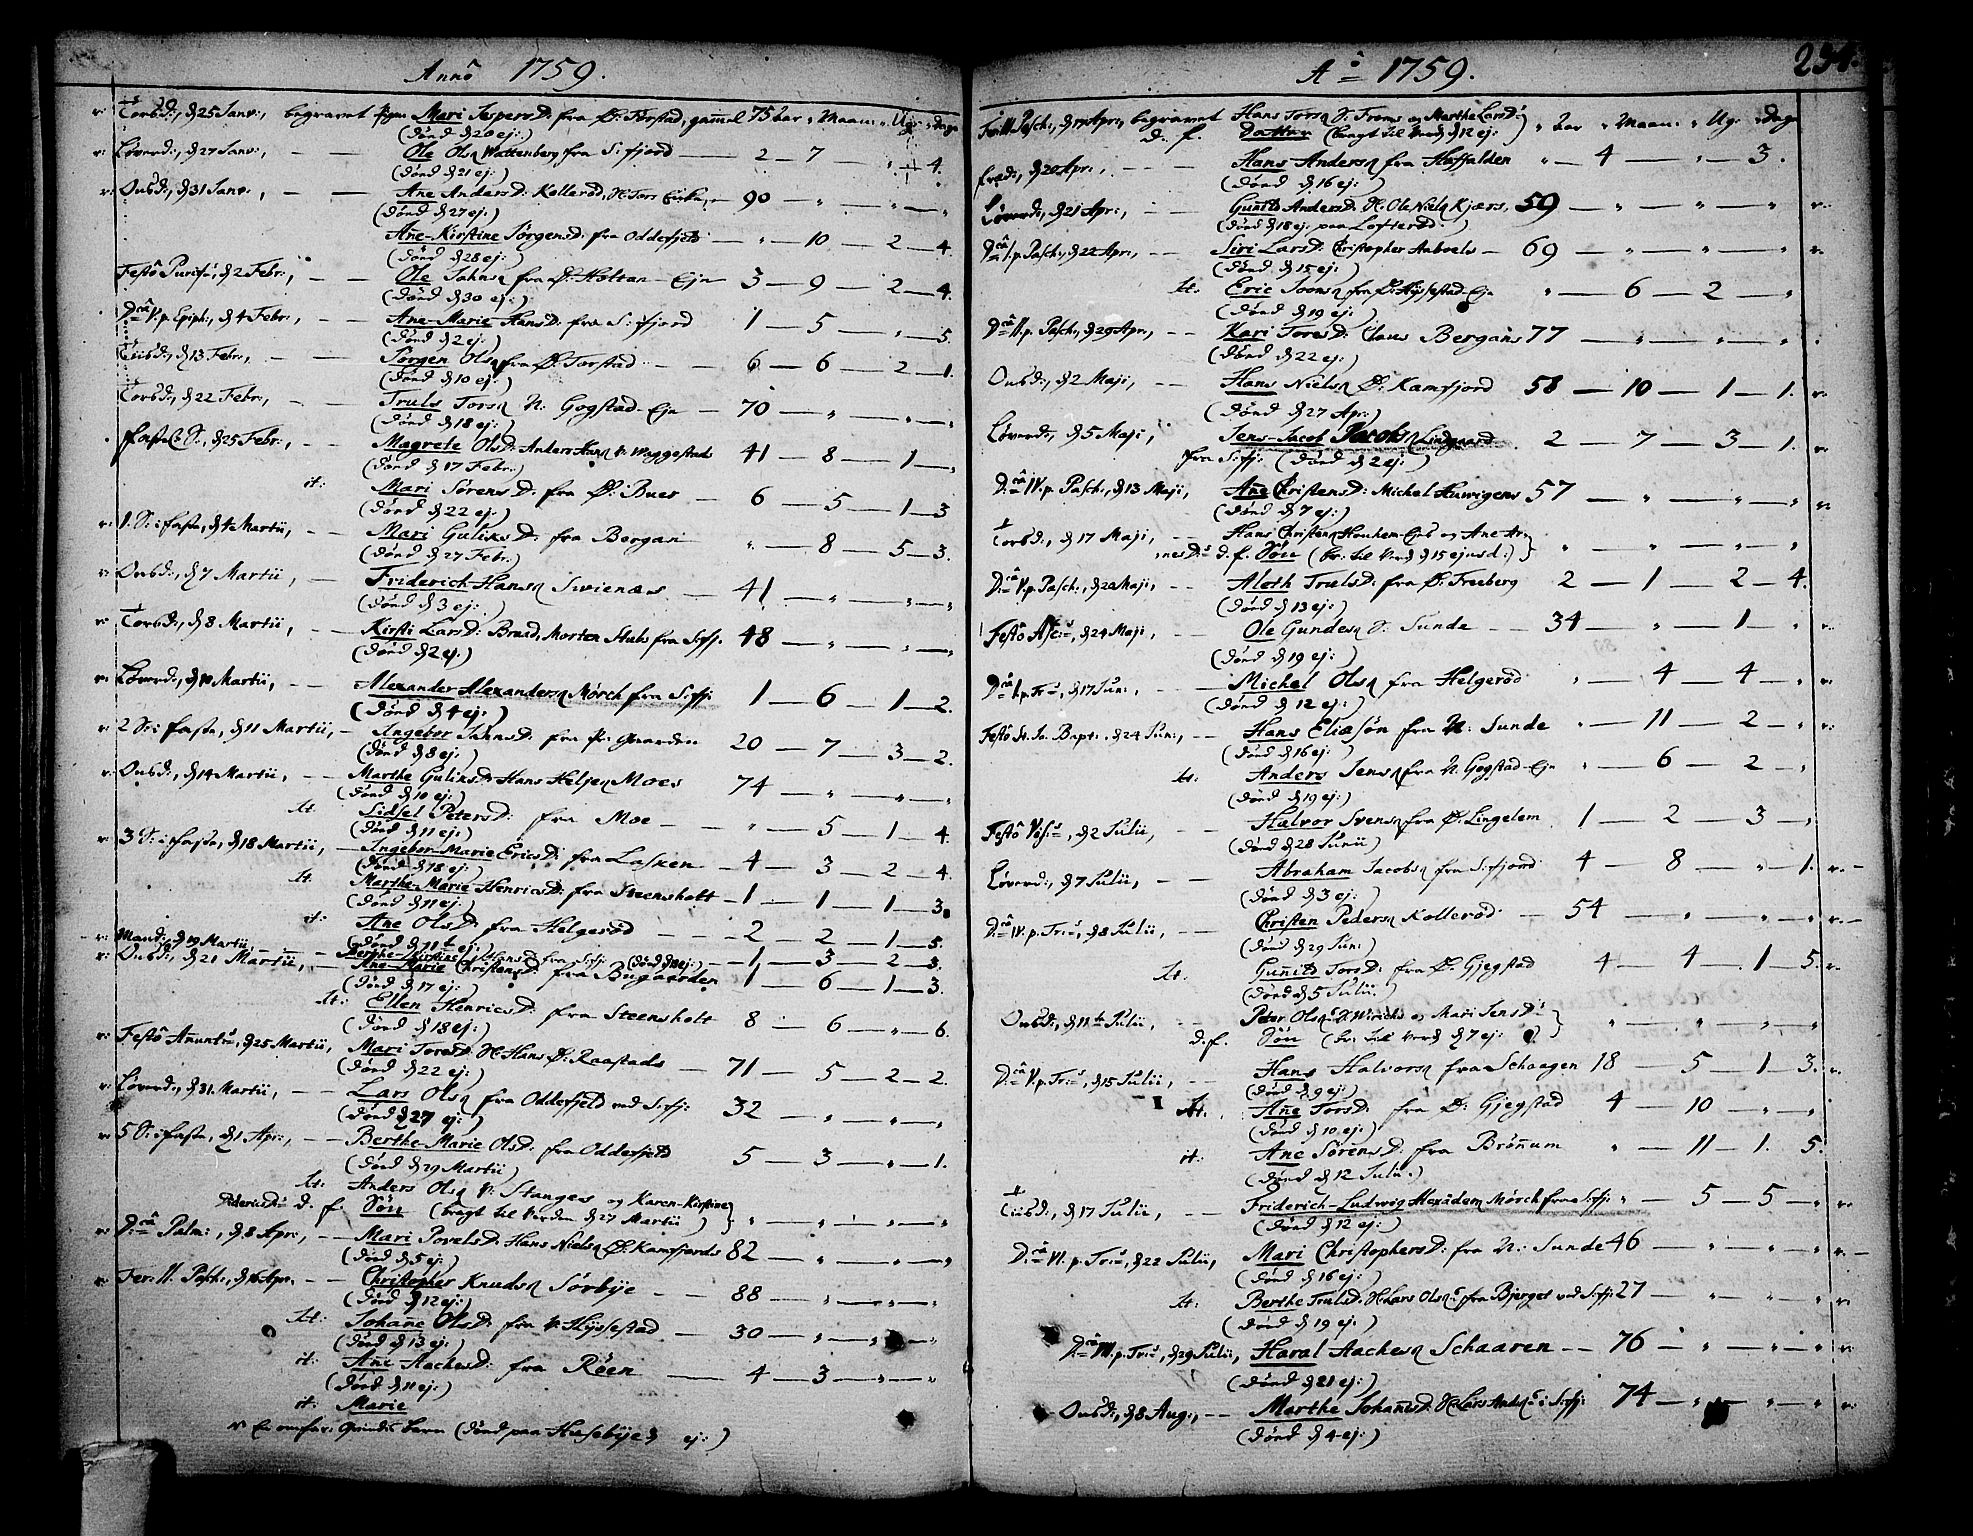 Annô 1759.
Torsd:, d 25 Janv:, begravent Mari JespersD: fra Ø: Torstad, gammel 75 Aar „ Maan: „ Ug: „ dage
(dönd d 20 ej:)
Löverd:, d 27 Janv:, — — Ole Ols: Wattenberg fra S:fjord — 2 — 7 „ 4.
(dönd d 21 ej:)
Onsd:, d 31 Janv:, — — Ane AndersD: Kollerød, — 90 — „ — „ — „
(dönd d 27 ej:)
Ane-Kirstine JörgensD: fra Oddersfield — „ — 10 — 2 — 4.
(dönd d 28 ej:)
Festô Purif:, d 2 Febr:, — — Ole Jahns: fra Ø: Holtan-Eje — 3 — 9 — 2 — 4.
(dönd d 30 ej:)
Dca V. p. Epiph:, d 4 Febr:, — — Ane-Marie HansD: fra S:fjord 1 — 5 — „ — 5.
(dönd d 2 ej:)
Tiisd:, d 13 Febr:, — — Jörgen Ols: fra Ø: Torstad — 6 — 6 — 2 — 1.
(dönd d 10 ej:)
Torsd:, d 22 Febr:, — — Truls Tors: N: Gogstad-Eje — 70 — „ — „ — „
(dönd d 18 ej:)
Faste S:, d 25 Febr:, — — Magrete OlsD: Anders Hans: V: Waggestads 41 — 8 — 1 — „
(dönd d 17 Febr:)
it: Mari SörensD: fra Ø: Bues — 6 — 5 — 1 — 3
(dönd d 22 ej:)
1. S: i faste, d 4 Martii, — — Mari GuliksD: fra Bergan „ — 8 — 5 — 3.
(dönd d 27 Febr:)
Onsd:, d 7 Martii, — Friderich Hans: Svienæs — 41 — „ — „ — „
(dönd d 3 ej:)
Torsd:, d 8 Martii, — Kirsti LarsD: Brand, Morten Stubs fra S:fj: 48 — „ — „ — „
(dönd d 2 ej)
Löverd:, d 10 Martii, — Alexander Alexanders: Mörch fra S:fj: 1 — 6 — 1 — 2.
(dönd d 4 ej:)
2 S: i faste, d 11 Martii, — Ingebor JahnsD: fra Gaarden 20 — 7 — 3 — 2.
(dönd d 8 ej:)
Onsd:, d 14 Martii, — Marthe GuliksD: Hans Heljes: Moes 74 — „ — „ — „
(dönd d 10 ej:)
it. Sidsel PetersD: fra Moe — „ — 5 — 1 — 4.
(dönd d 11 ej:)
3 S: i faste, d 18 Martii, — Ingebor-Marie EricsD: fra Lasken — 4 — 3 — 2 — 4.
(dönd d 18 ej:)
it. Marthe-Marie HenricsD: fra Steensholt — 1 — 1 — 1 — 3.
(dönd d 11 ej:)
it: Ane OlsD: fra Helgeröd — 2 — 2 — 1 — 5.
(dönd d 11te ej:)
Mand:, d 19 Martii, — Berthe-Kirstine fra S:fj: (dönd d ej:) — 1 — 3 — 2 — 3.
Onsd:, d 21 Martii, — Ane-Marie ChristensD: fra Bugaarden 1 — 6 — 1 — 3.
(dönd d 17 ej:)
it: Ellen HenricsD: fra Steensholt 8 — 6 — „ — 6.
(dönd d 18 ej:)
Festô Anunt:, d 25 Martii, Mari ToresD: Hans Ø: Raastads — 71 — 5 — 2 — 2.
(dönd d 22 ej:)
Löverd:, d 31. Martii, — Lars Ols: fra Oddersfield ved S:fj: 32 — „ — „ — „
(dönd d 27 ej:)
5 S: i faste, d 1 Apr:, — Berthe-Marie OlsD: fra Oddersfield 5 — 3 — „ — 1.
(dönd d 29 Martii)
it: Anders Ols: V: Stanges og Karen-Kirstine
d. f. Sön (bragt til Verden d 27 Martii) „ — „ — „ — „
Dca Palm:, d 8 Apr:, — Mari PovelsD: Hans Niels: Ø: Kamfjords 82 — „ — „ — „
(dönd d 5 ej:)
Fer: II. Pasch:, d 16 Apr. — Christopher Knuds: Sörbye — 88 — „ — „ — „
(dönd d 12 ej:)
it: Johane OlsD: fra V: Hyssestad — 30 — „ — „ — „
(dönd d 13 ej:)
it: Ane AachesD: fra Röen — 4 — 3 — „ — „
(dönd d 11 ej:)
it: Marie
Et omfar: Qvindes barn (dönd paa Husebye d ej:)
Aô 1759.
Pasch:, d Apr:, begravent Hans Tors: S: Froms og Marthe LarsD:
d. f. Datter (bragt til Verd d 12 ej:) „ Aar „ Maan: „ Ug: „ dage
Fred:, d 20 Apr:, — Hans Anders: fra Haffalden „ — 4 — „ — 3.
(dönd d 16 ej:)
Löverd:, d 21 Apr:, — Gunild AndersD: Ole Niels: Kjærs, 59 — „ — „ — „
(dönd d 18 ej: paa )
Dca I. p. Pasch:, d 22 Apr:, — Siri LarsD: Christopher Aaboels — 69 — „ — „ — „
(dönd d 15 ej:)
it. Eric Joons: fra Ø: Hyssestad-Eje „ — 6 — 2 — „
(dönd d 19 ej:)
Dca II. p. Pasch:, d 29 Apr:, — Kari ToresD: Claus Bergans 77 — „ — „ — „
(dönd d 22 ej:)
Onsd:, d 2 Maji, — Hans Niels: Ø: Kamfjord 58 — 10 — 1 — 1.
(dönd d 27 Apr:)
Löverd:, d 5 Maji, — Jens-Jacob Jacobs: Lindgaard 2 — 7 — 3 — 1.
fra S:fj: (dönd d 2 ej:)
Dca IV. p. Pasch:, d 13 Maji, Ane ChristensD: Michel Huwigens 57 — „ — „ — „
(dönd d 7 ej:)
Torsd:, d 17 Maji, — Hans Christens: Houhem-Ejes og Ane Ar-
nesD: d. f. Sön (br. til Verd d 15 ejusd:) „ — „ — „ — „
Dca V. p. Pasch:, d 20 Maji, — Aloth TrulsD: fra Ø: Freeberg 2 — 1 — 2 — 4.
(dönd d 13 ej:)
Festô Asc:, d 24 Maji, — Ole Gundes: S: Sunde — 34 — „ — 1 — „
(dönd d 19 ej:)
Dca I. p. Tri:, d 17 Jun:, — Michel Ols: fra Helgeröd „ — 4 — 4 — „
(dönd d 12 ej:)
Festô St. Jo. Bapt:, d 24 Jun:, — Hans Eliæsön fra N: Sunde „ — 11 — 2 — „
(dönd d 16 ej:)
it: Anders Jens: fra N: Gogstad-Eje „ — 6 — 2 — „
(dönd d 19 ej:)
Festô Visi:, d 2 Julii, — Halvor Svens: fra Ø: Lingelem 1 — 2 — 3 — „
(dönd d 28 Junii)
Löverd:, d 7 Julii, — Abraham Jacobs: fra S:fjord 4 — 8 — „ — 1.
(dönd d 3 ej:)
Dca IV. p. Tri:, d 8 Julii, — Christen Peders: Kolleröd — 54 — „ — „ — „
(dönd d 29 Jun:)
it. Gunild TorsD: fra Ø: Gjegstad 4 — 4 — 1 — 5.
(dönd d 5 Julii.)
Onsd:, d 11te Julii, — Peter Ols: Ø: Wirichs og Mari JensD:
d. f. Sön (br. til Verd d 7 ej:) „ — „ — „ — „
Dca V. p. Tri:, d 15 Julii, — Hans Halvors: fra Schaagen 18 — 5 — 1 — 3.
(dönd d 9 ej:)
it. Ane TorsD: fra Ø: Gjegstad 4 — 10 — „ — „
(dönd d 10 ej:)
it: Ane SörensD: fra Brönum „ — 11 — 1. 5.
(dönd d 12 Julii.)
Tiisd:, d 17 Julii, — Friderich-Ludwig Alexadem Mörch fra S:fj: „ — 5 — 5 — „
(dönd d 12 ej:)
Dca VI. p. Tri:, d 22 Julii, Mari ChristophersD: fra N: Sunde 46 — „ — „ — „
(dönd d 16 ej:)
it. Berthe TrulsD: Lars Ols: fra Bjerget ved S:fj: 27 — „ — „ — „
(dönd d 19 ej:)
Dca VII. p. Tri:, d 29 Julii, Haral Aaches: Schaaren — 76 — „ — „ — „
(dönd d 21 ej:)
Onsd:, d 8 Aug:, — Marthe JohanesD: Lars Anders: i S:fj: 74 — „ — „ — „
(dönd d 4 ej:)